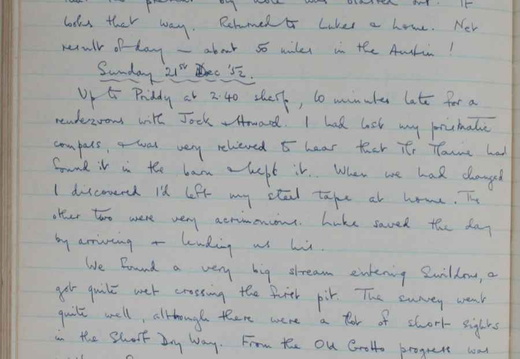 that way. Returned to Luke's & home. Net
result of day — about 50 miles in the Austin!
Sunday 21st Dec '52.
Up to Priddy at 2.40 sharp, 10 minutes late for a
rendezvous with Jack & Howard. I had lost my prismatic
compass, & was very relieved to hear that Mr Maine had
found it in the barn & kept it. When we had changed
I discovered I'd left my steel tape at home. The
other two were very acrimonious. Luke saved the day
by arriving & lending us his.
We found a very big stream entering Swildons, &
got quite wet crossing the first pit. The survey went
quite well, although there were a lot of short sights
in the Short Dry Way. From the Old Grotto progress was